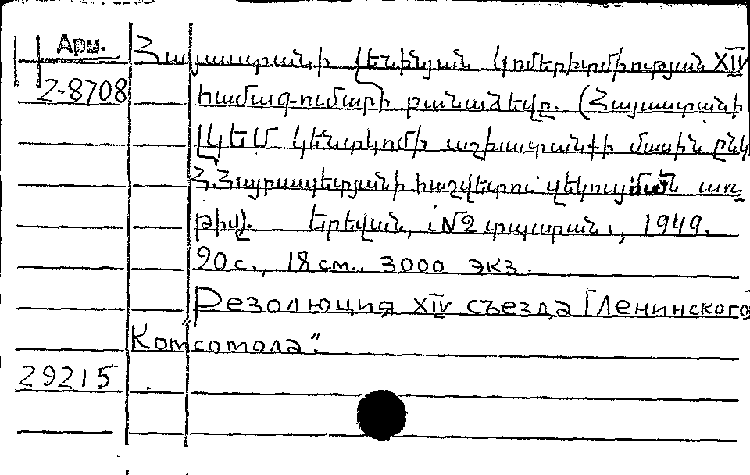 Арм. Հայաստանի Լենինյան կոմերիտմիության XIV
2-8708 համագումարի բանաձևը. (Հայաստանի
ԼԿԵՄ կենտկոմի աշխատանքի մասին ընկ
Հ. Հայրապետյանի հաշվետու զեկուցման առ
թիվ. Երեվան, №2 տպարան, 1949.
20 с., 18 см. 3000 экз.
Резолюция XIV съезда Ленинского
Комсомола".
29215